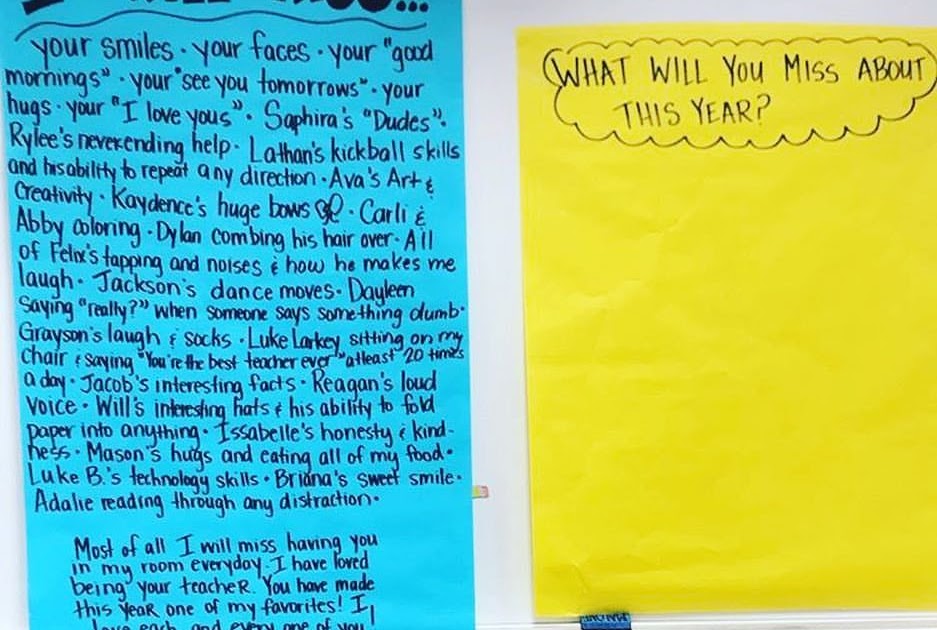 your smiles · your faces · your "good
mornings" · your "see you tomorrows" · your
hugs · your "I love yous" · Saphira's "Dudes" ·
Rylee's neverending help · Lathan's kickball skills
and his ability to repeat any direction · Ava's Art &
Creativity · Kaydence's huge bows · Carli &
Abby coloring · Dylan combing his hair over · All
of Felix's tapping and noises & how he makes me
laugh · Jackson's dance moves · Dayleen
saying "really?" when someone says something dumb ·
Grayson's laugh & socks · Luke Larkey sitting on my
chair & saying "You're the best teacher ever" atleast 20 times
a day · Jacob's interesting facts · Reagan's loud
voice · Will's interesting hats & his ability to fold
paper into anything · Issabelle's honesty & kind-
ness · Mason's hugs and eating all of my food ·
Luke B.'s technology skills · Briana's sweet smile ·
Adalie reading through any distraction ·
Most of all I will miss having you
in my room everyday. I have loved
being your teacher. You have made
this year one of my favorites! I
love each and every one of you
WHAT WILL YOU MISS ABOUT
THIS YEAR?